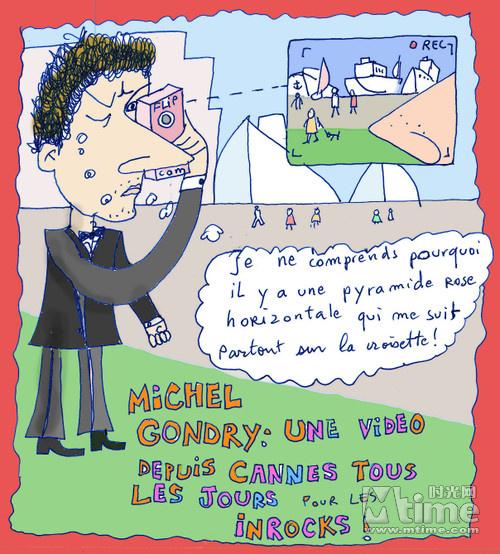 REC
FLIP
com
Je ne comprends pourquoi
il y a une pyramide rose
horizontale qui me suit
partout sur la croisette!
MiCHEL
GONDRY: UNE ViDEO
DEPUiS CANNES TOUS
LES JOURS POUR LES
iNROCKS!
时光网
Mtime
www.mtime.com